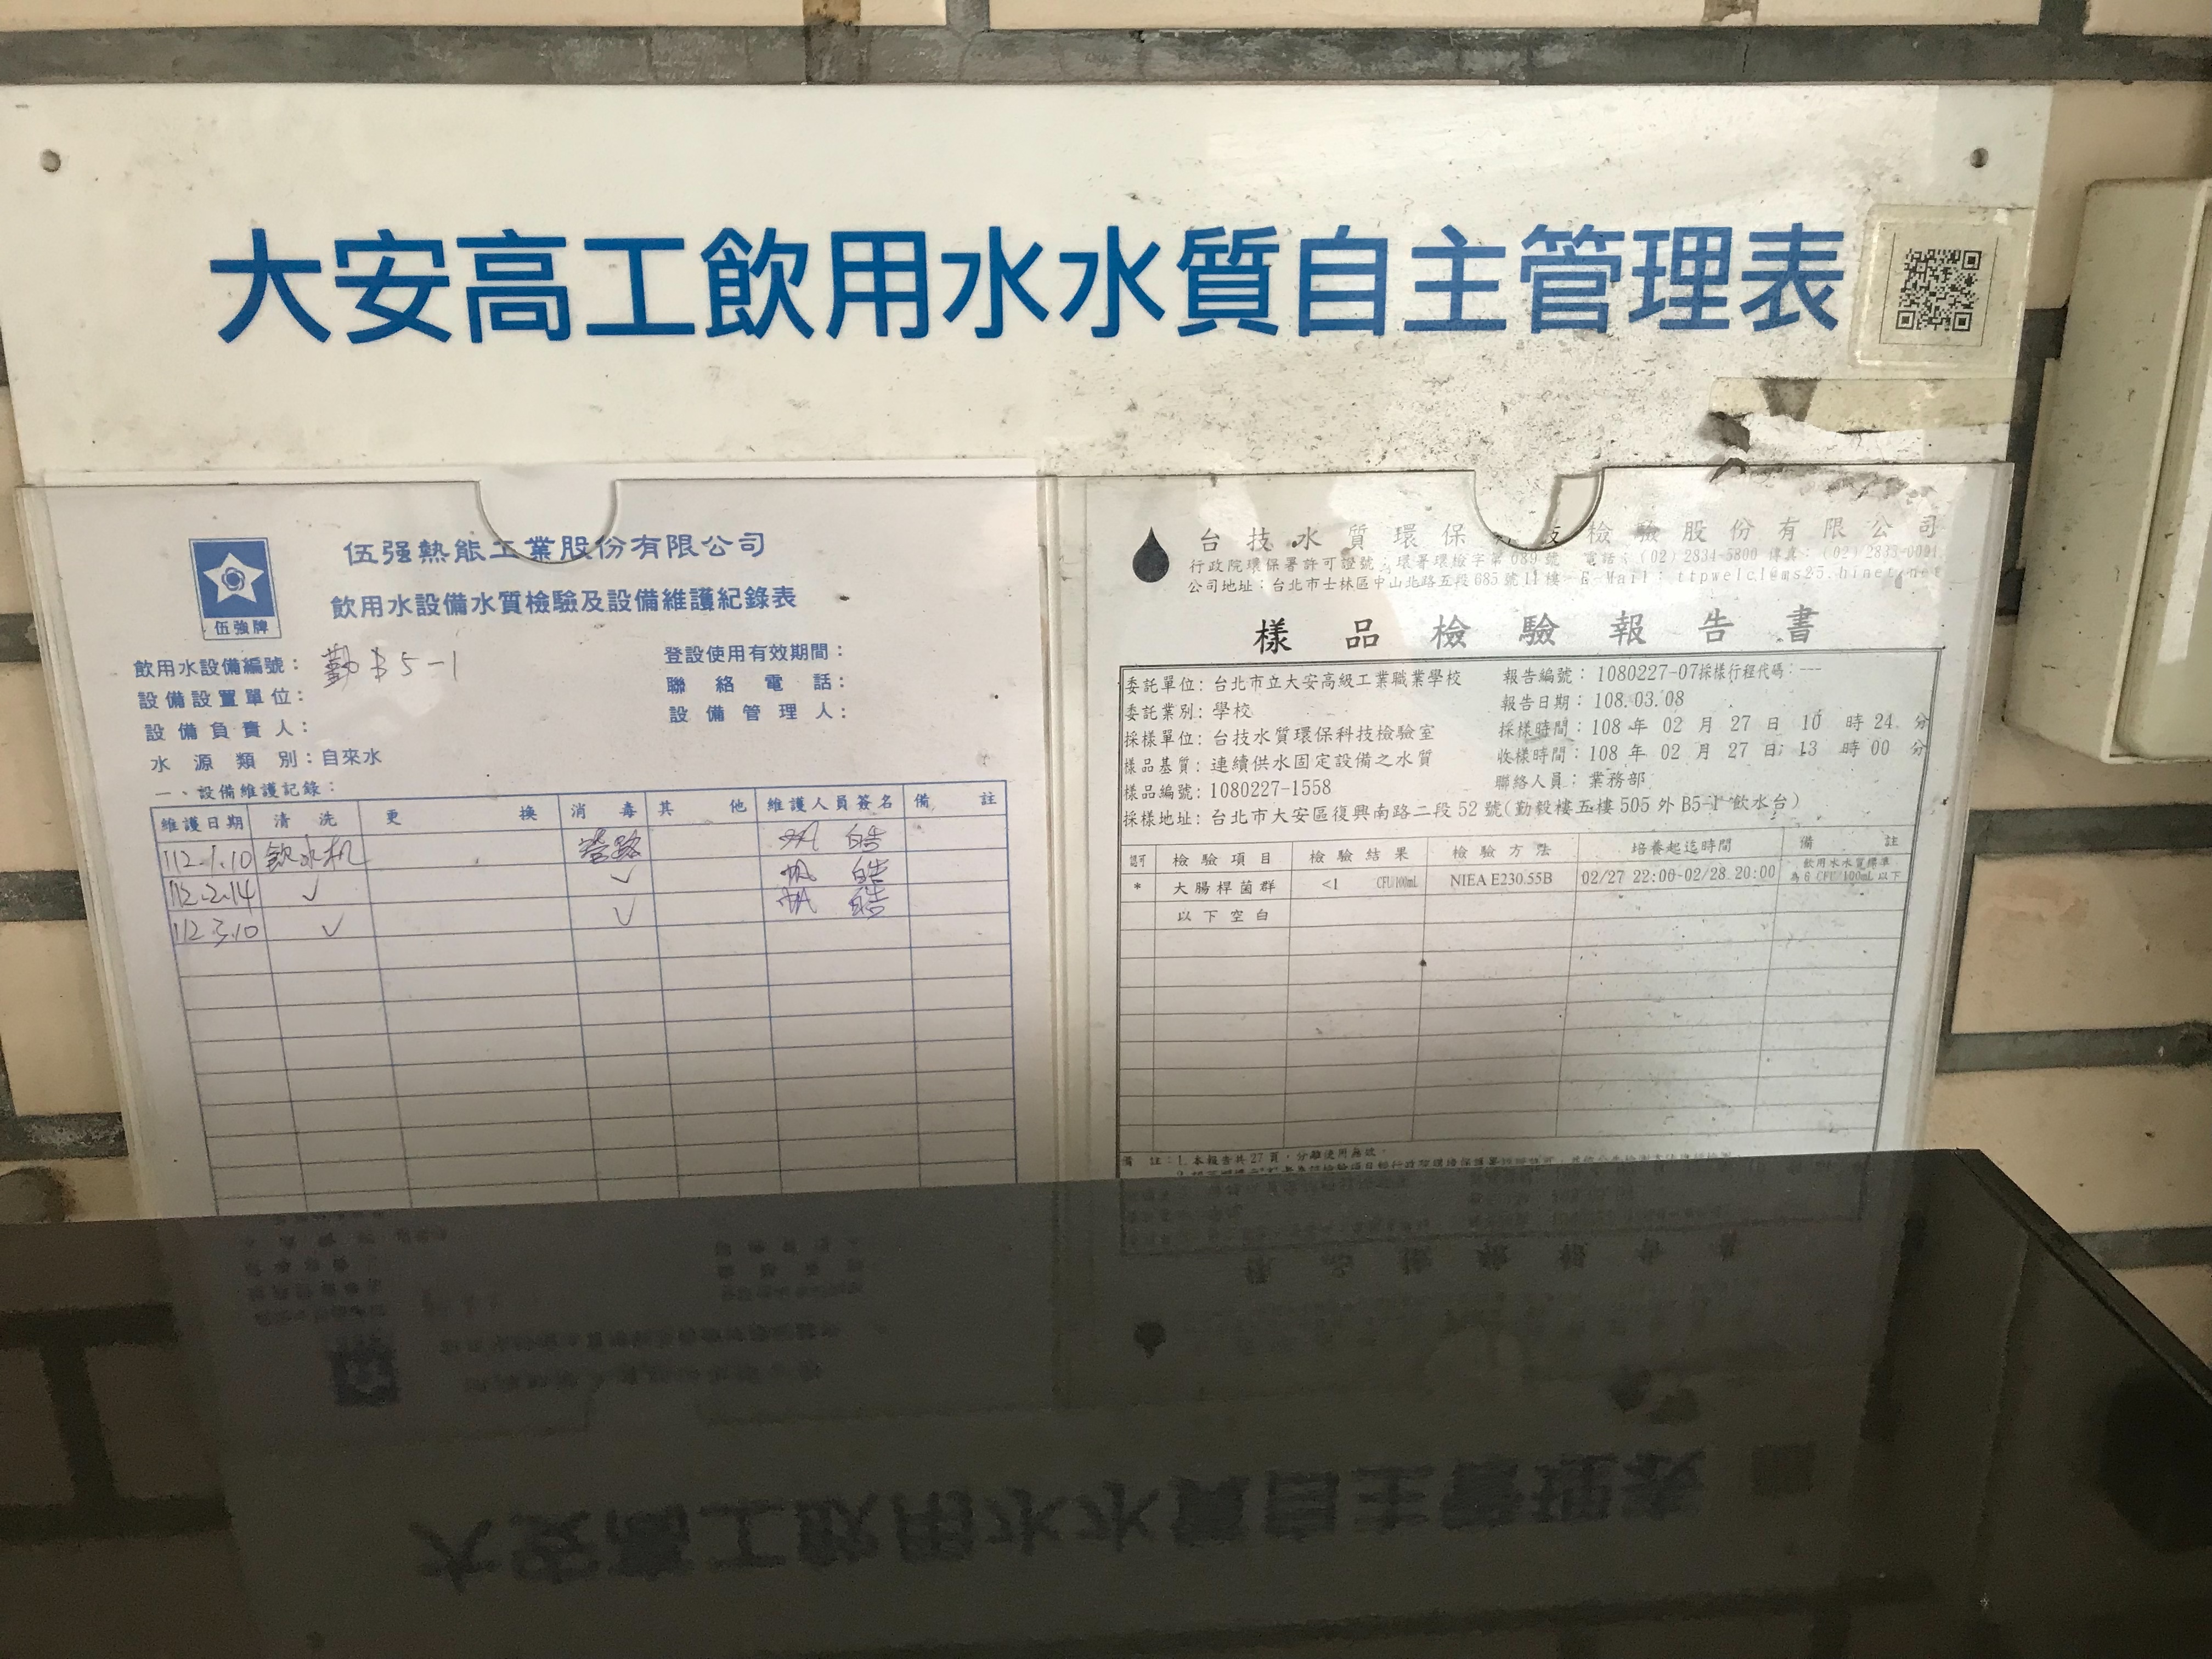 大安高工飲用水水質自主管理表
伍强熱能工業股份有限公司
飲用水設備水質檢驗及設備維護紀錄表
伍強牌
飲用水設備編號： 勤B5-1
設備設置單位：
設備負責人：
水源類別：自來水
登設使用有效期間：
聯絡電話：
設備管理人：
一、設備維護記錄：
維護日期 清洗 更換 消毒 其他 維護人員簽名 備註
112.1.10 飲水机 管路
112.2.14 ✓ ✓
112.3.10 ✓ ✓
台技水質環保 檢驗股份有限公司
行政院環保署許可證號：環署環檢字第089號 電話：(02)2834-5800 傳真：(02)2833-0001
公司地址：台北市士林區中山北路五段685號11樓 E-Mail：ttpwelcl@ms25.hinet.net
樣品檢驗報告書
委託單位：台北市立大安高級工業職業學校 報告編號：1080227-07採樣行程代碼：---
委託業別：學校 報告日期：108.03.08
採樣單位：台技水質環保科技檢驗室 採樣時間：108年02月27日10時24分
樣品基質：連續供水固定設備之水質 收樣時間：108年02月27日13時00分
樣品編號：1080227-1558 聯絡人員：業務部
採樣地址：台北市大安區復興南路二段52號(勤毅樓五樓505外B5-1飲水台)
認可 檢驗項目 檢驗結果 檢驗方法 培養起迄時間 備註
* 大腸桿菌群 <1 CFU/100mL NIEA E230.55B 02/27 22:00~02/28 20:00 飲用水水質標準為6 CFU/100mL以下
以下空白
備註：1.本報告共27頁，分離使用無效。